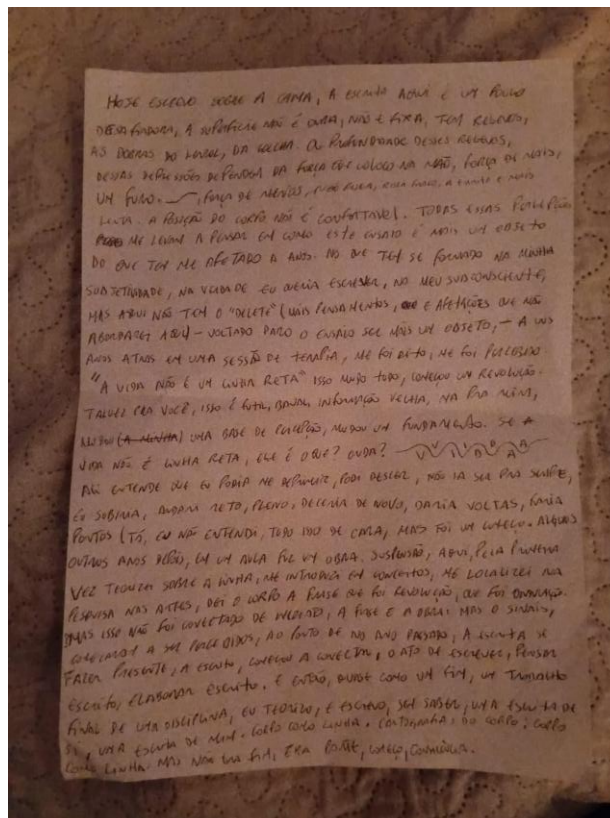 HOJE ESCREVO SOBRE A CAMA, A ESCRITA AQUI É UM POUCO
DESAFIADORA, A SUPERFÍCIE NÃO É DURA, NÃO É FIXA, TEM RELEVOS,
AS DOBRAS DO LENÇOL, DA COLCHA. A PROFUNDIDADE DESSES RELEVOS,
DESSAS DEPRESSÕES DEPENDEM DA FORÇA QUE COLOCO NA MÃO, FORÇA DE MAIS,
UM FURO. , FORÇA DE MENOS, A ESCRITA É MAIS
LENTA. A POSIÇÃO DO CORPO NÃO É CONFORTÁVEL. TODAS ESSAS PERCEPÇÕES
ME LEVAM A PENSAR EM COMO ESTE ENSAIO É MAIS UM OBJETO
DO QUE TEM ME AFETADO A ANOS. NO QUE TEM SE FORMADO NA MINHA
SUBJETIVIDADE, NA VERDADE EU QUERIA ESCREVER, NO MEU SUBCONSCIENTE,
MAS AQUI NÃO TEM O "DELETE" (MAIS PENSAMENTOS, E AFETAÇÕES QUE NÃO
ABORDAREI AQUI - VOLTADO PARA O ENSAIO SER MAIS UM OBJETO, - A UNS
ANOS ATRÁS EM UMA SESSÃO DE TERAPIA, ME FOI DITO, ME FOI PERCEBIDO
"A VIDA NÃO É UM LINHA RETA" ISSO MUDO TODO, COMEÇOU UM REVOLUÇÃO.
TALVEZ PRA VOCÊ, ISSO É FÚTIL, BANAL, INFORMAÇÃO VELHA, MA PRA MIM,
MUDOU (A MINHA) UMA BASE DE PERCEPÇÃO, MUDOU UM FUNDAMENTO. SE A
VIDA NÃO É LINHA RETA, ELE É O QUE? ONDA?
ALI ENTENDE QUE EU PODIA ME DEPRIMIR, PODI DESCER, NÃO IA SER PRA SEMPRE,
EU SUBIRIA, ANDARIA RETO, PLENO, DECERIA DE NOVO, DARIA VOLTAS, FARIA
PONTOS (TÁ, EU NÃO ENTENDI, TODO ISSO DE CARA, MAS FOI UM COMEÇO. ALGUNS
OUTROS ANOS DEPOIS, EM UM AULA FIZ UM OBRA. SUSPENSÃO, AQUI, PELA PRIMEIRA
VEZ TEORIZEI SOBRE A LINHA, ME INTRODUZI EM CONCEITOS, ME LOCALIZEI NA
PESQUISA NAS ARTES, DEI O CORPO A FRASE QUE FOI REVOLUÇÃO, QUE FOI
MAS ISSO NÃO FOI CONECTADO DE IMEDIATO, A FRASE E A OBRA. MAS O SINAIS,
COMEÇARAM A SER PERCEBIDOS, AO PONTO DE NO ANO PASSADO, A ESCRITA SE
FAZER PRESENTE, A ESCRITA, COMEÇOU A CONECTAR, O ATO DE ESCREVER, PENSAR
ESCRITO, ELABORAR ESCRITO. E ENTÃO, QUASE COMO UM FIM, UM TRABALHO
FINAL DE UMA DISCIPLINA, EU TEORIZO, E ESCREVO, SEM SABER, UMA ESCRITA DE
SI, UMA ESCRITA DE MIM. CORPO COMO LINHA. CARTOGRAFIA, DO CORPO: CORPO
COMO LINHA. MAS NÃO ERA FIM, ERA PONTE, COMEÇO,